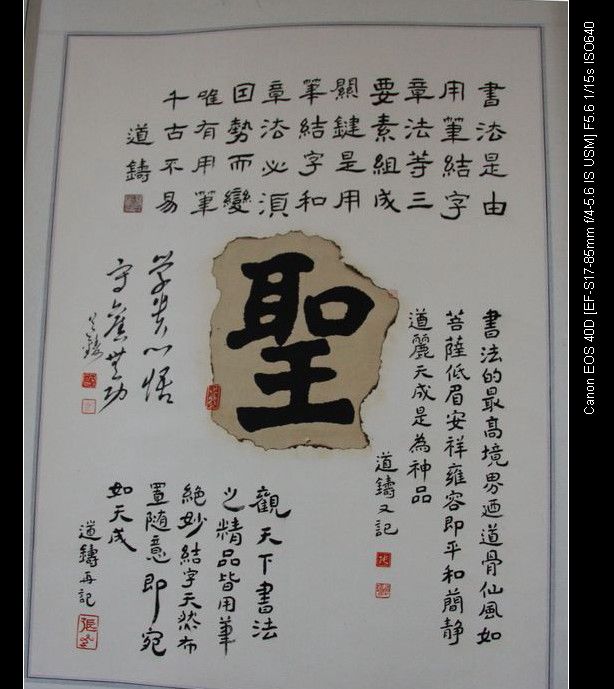 書法是由
用筆結字
章法等三
要素組成
關鍵是用
筆結字和
章法必湏
囙勢而變
唯有用筆
千古不易
道鑄
聖
書法的最高境界迺道骨仙風如
菩薩低眉安祥雍容即平和簡靜
道麗天成是為神品
道鑄又記
学貴心悟
守舊無功
道鑄
觀天下書法
之精品皆用筆
絕妙結字天然布
置隨意即宛
如天成
道鑄再記
Canon EOS 40D [EF-S17-85mm f/4-5.6 IS USM] F5.6 1/15s ISO640